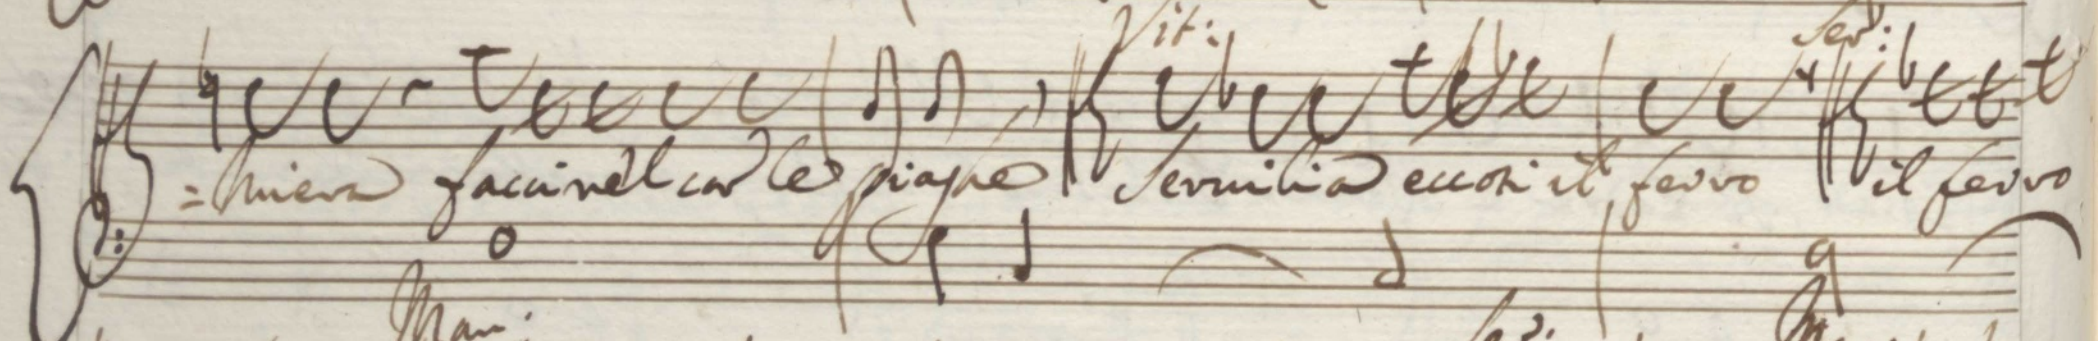 Vit: Ser:
=hiera facci nel cor le piaghe Servilia eccoti il ferro il ferro
Man: